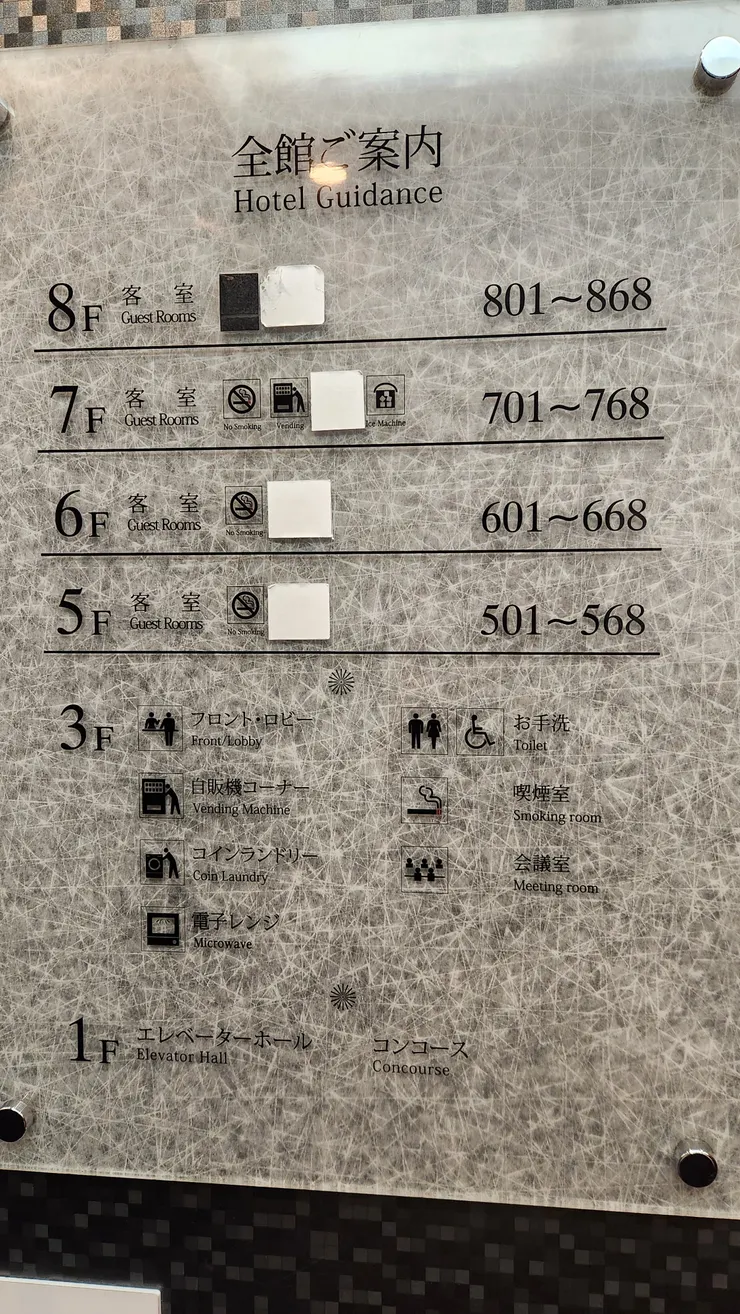 全館ご案内
Hotel Guidance
8F 客室 801～868
Guest Rooms
7F 客室 701～768
Guest Rooms No Smoking Vending Ice Machine
6F 客室 601～668
Guest Rooms No Smoking
5F 客室 501～568
Guest Rooms No Smoking
3F フロント・ロビー お手洗
Front/Lobby Toilet
自販機コーナー 喫煙室
Vending Machine Smoking room
コインランドリー 会議室
Coin Laundry Meeting room
電子レンジ
Microwave
1F エレベーターホール コンコース
Elevator Hall Concourse